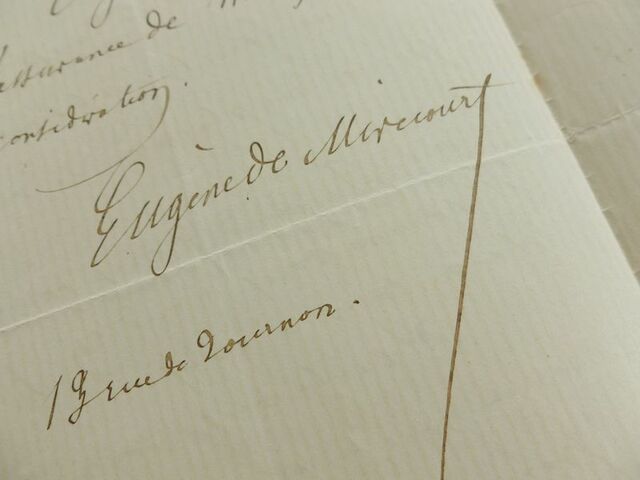 assurance de
considération.
Eugène de Mirecourt
13 rue de Tournon.